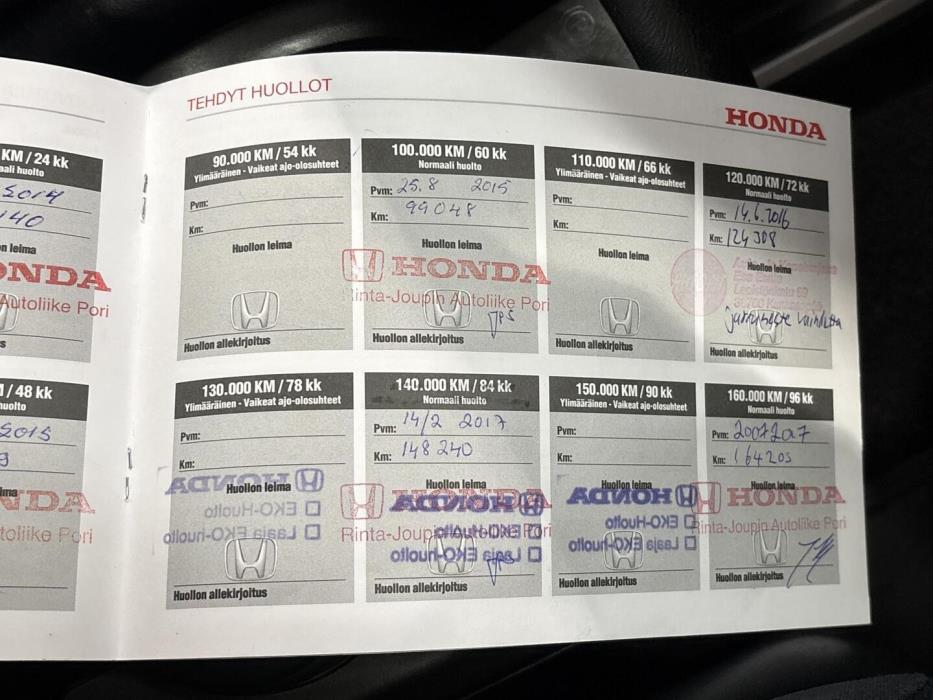 TEHDYT HUOLLOT
HONDA
KM / 24 kk
2014
HONDA
Autoliike Pori
90.000 KM / 54 kk
Ylimääräinen - Vaikeat ajo-olosuhteet
Pvm:
Km:
Huollon leima
Huollon allekirjoitus
100.000 KM / 60 kk
Normaali huolto
Pvm: 25.8 2015
Km: 99048
Huollon leima
HONDA
Rinta-Joupin Autoliike Pori
Huollon allekirjoitus
110.000 KM / 66 kk
Ylimääräinen - Vaikeat ajo-olosuhteet
Pvm:
Km:
Huollon leima
Huollon allekirjoitus
120.000 KM / 72 kk
Normaali huolto
Pvm: 14.6.2016
Km: 124 308
Huollon leima
Huollon allekirjoitus
/ 48 kk
2015
Autoliike Pori
130.000 KM / 78 kk
Ylimääräinen - Vaikeat ajo-olosuhteet
Pvm:
Km:
Huollon leima
HONDA
EKO-Huolto
Laaja EKO-huolto
Huollon allekirjoitus
140.000 KM / 84 kk
Normaali huolto
Pvm: 14/2 2017
Km: 148 240
HONDA
Rinta-Joupin Autoliike
Laaja EKO-huolto
Huollon allekirjoitus
150.000 KM / 90 kk
Ylimääräinen - Vaikeat ajo-olosuhteet
Pvm:
Km:
Huollon leima
HONDA
EKO-Huolto
Laaja EKO-huolto
Huollon allekirjoitus
160.000 KM / 96 kk
Normaali huolto
Pvm: 20072017
Km: 164205
Huollon leima
HONDA
Rinta-Joupin Autoliike Pori
Huollon allekirjoitus